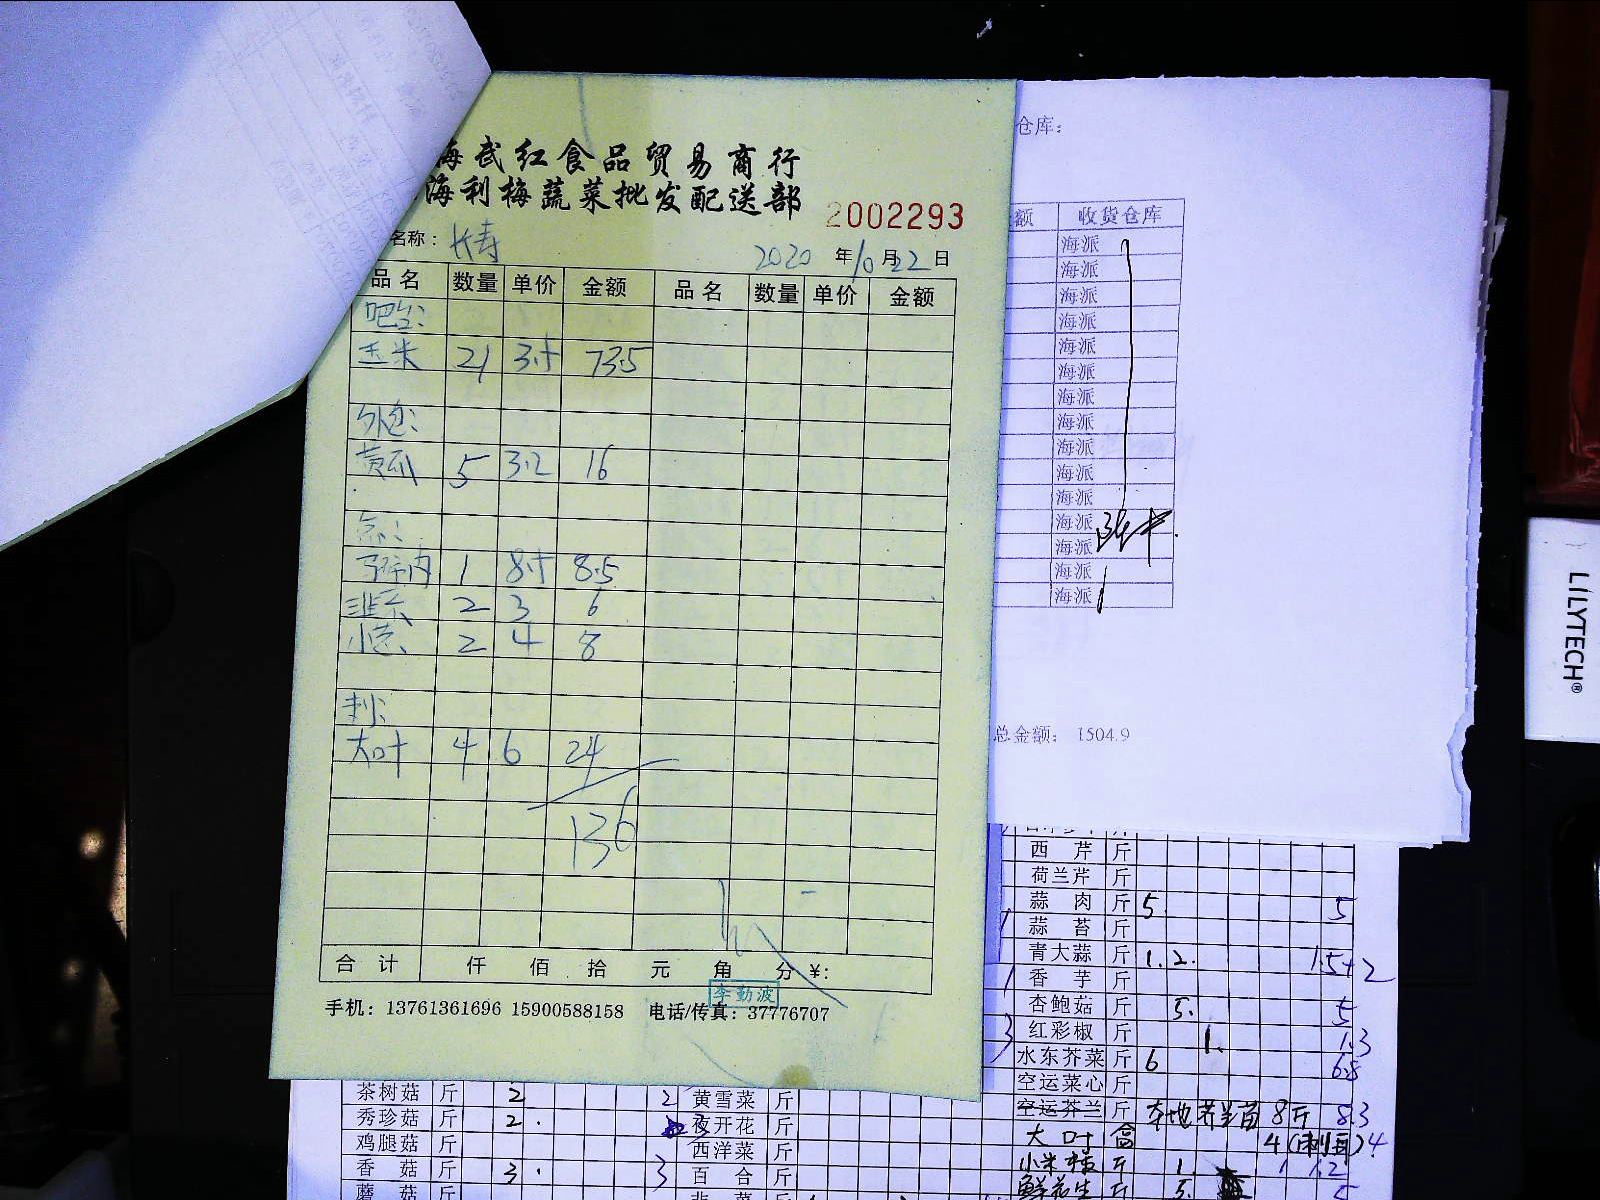 海武红食品贸易商行
海利梅蔬菜批发配送部
2002293
名称: 长寿
2020 年 10 月 22 日
品名 数量 单价 金额 品名 数量 单价 金额
吧台:
玉米 21 3.5 73.5
外包:
黄瓜 5 3.2 16
点:
1 8.5 8.5
2 3 6
2 4 8
大叶 4 6 24
136
合计 仟 佰 拾 元 角 分 ¥:
李勤波
手机: 13761361696 15900588158 电话/传真: 37776707
仓库:
额 收货仓库
海派
海派
海派
海派
海派
海派
海派
海派
海派
海派
海派
海派
海派
海派
海派
总金额: 1504.9
LILYTECH®
西芹 斤
荷兰芹 斤
蒜肉 斤 5 5
蒜苔 斤
青大蒜 斤 1. 2. 1.5+2
香芋 斤
杏鲍菇 斤 5. 5
红彩椒 斤 1. 1.3
水东芥菜 斤 6 6.8
空运菜心 斤
空运芥兰 斤 本地芥兰苗 8斤 8.3
大叶 盒 4 4
小米椒 斤 1. 1 1.2
鲜花生 斤 5. 5
茶树菇 斤 2 2 黄雪菜 斤
秀珍菇 斤 2. 夜开花 斤
鸡腿菇 斤 西洋菜 斤
香菇 斤 3. 3 百合 斤
蘑菇 斤 韭菜